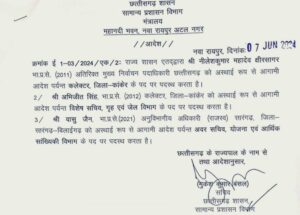 छत्तीसगढ़ शासन
सामान्य प्रशासन विभाग
मंत्रालय
महानदी भवन, नवा रायपुर अटल नगर
//आदेश//
नवा रायपुर, दिनांक: 07 JUN 2024
क्रमांक ई 1-03/2024/एक/2: राज्य शासन एतद्द्वारा श्री नीलेशकुमार महादेव क्षीरसागर
भा.प्र.से. (2011) अतिरिक्त मुख्य निर्वाचन पदाधिकारी छत्तीसगढ़ को अस्थाई रूप से आगामी
आदेश पर्यन्त कलेक्टर, जिला-कांकेर के पद पर पदस्थ करता है।
2/ श्री अभिजीत सिंह, भा.प्र.से. (2012) कलेक्टर, जिला-कांकेर को अस्थाई रूप से आगामी
आदेश पर्यन्त विशेष सचिव, गृह एवं जेल विभाग के पद पर पदस्थ करता है।
3/ श्री वासु जैन, भा.प्र.से. (2021) अनुविभागीय अधिकारी (राजस्व) सारंगढ़, जिला-
सारंगढ़-बिलाईगढ़ को अस्थाई रूप से आगामी आदेश पर्यन्त अवर सचिव, योजना एवं आर्थिक
सांख्यिकी विभाग के पद पर पदस्थ करता है।
छत्तीसगढ़ के राज्यपाल के नाम से
तथा आदेशानुसार,
(मुकेश कुमार बंसल)
सचिव
छत्तीसगढ़ शासन
सामान्य प्रशासन विभाग